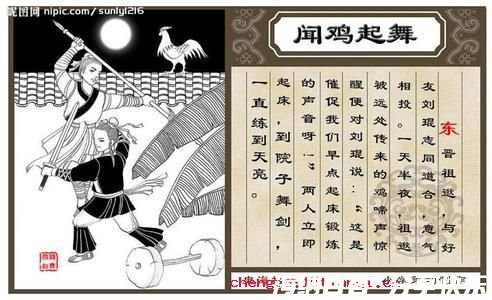 昵图网 nipic.com/sunly1216
闻鸡起舞
东晋祖逖，与好
友刘琨志同道合，意气
相投。一天半夜，祖逖
被远处传来的鸡啼声惊
醒便对刘琨说：“这是
催促我们早点起床锻炼
的声音呀！”两人立即
起床，到院子舞剑，
一直练到天亮。